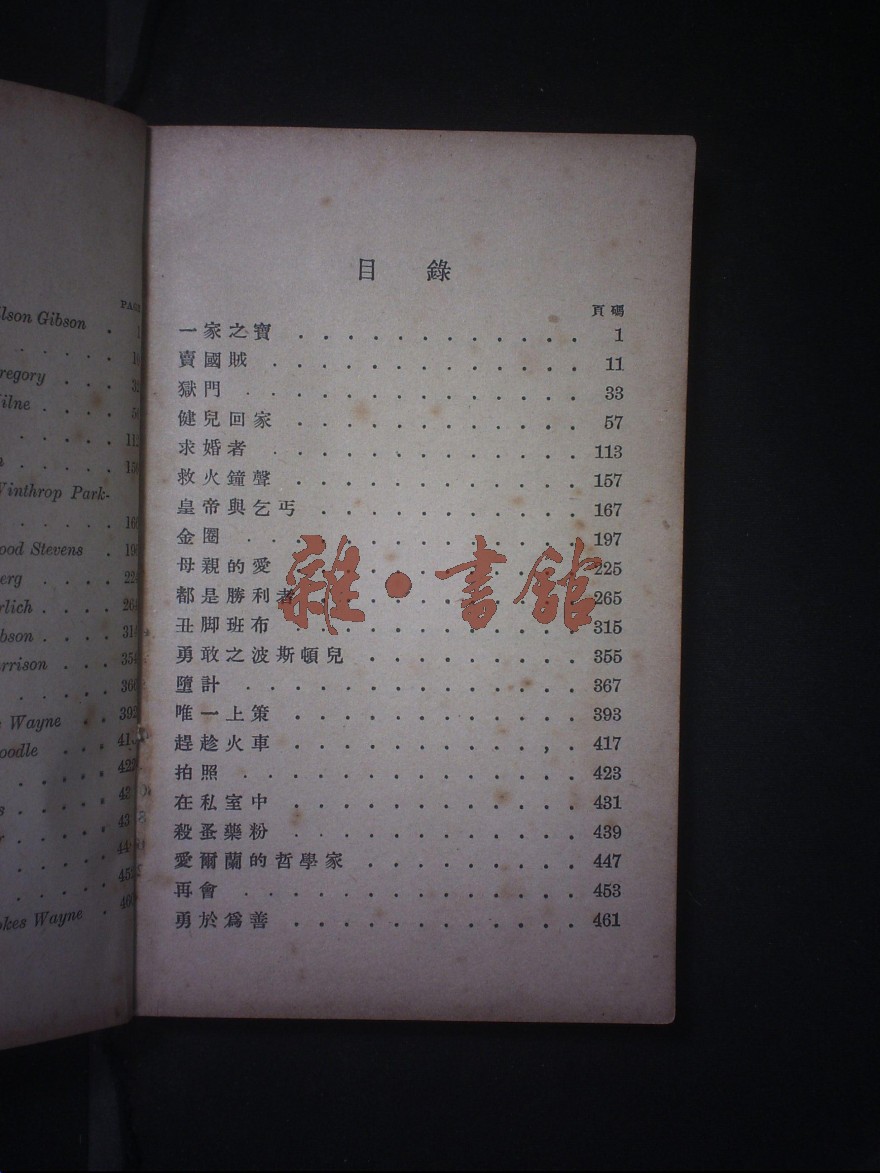 PAGE
lson Gibson .
regory . . . 32
ilne . . . .
Winthrop Park-
ood Stevens . 
erg . . . . 224
rlich . . . . 264
bson . . . . 314
rrison . . . 354
366
Wayne . . 392
oodle . . .
422
okes Wayne .
目錄
頁碼
一家之寶 . . . . . . . . . . . . 1
賣國賊 . . . . . . . . . . . . . 11
獄門 . . . . . . . . . . . . . . 33
健兒回家 . . . . . . . . . . . . 57
求婚者 . . . . . . . . . . . . . 113
救火鐘聲 . . . . . . . . . . . . 157
皇帝與乞丐 . . . . . . . . . . . 167
金圈 . . . . . . . . . . . . . . 197
母親的愛 . . . . . . . . . . . . 225
都是勝利者 . . . . . . . . . . . 265
丑脚班布 . . . . . . . . . . . . 315
勇敢之波斯頓兒 . . . . . . . . . 355
墮計 . . . . . . . . . . . . . . 367
唯一上策 . . . . . . . . . . . . 393
趕趁火車 . . . . . . . . . . . . 417
拍照 . . . . . . . . . . . . . . 423
在私室中 . . . . . . . . . . . . 431
殺蚤藥粉 . . . . . . . . . . . . 439
愛爾蘭的哲學家 . . . . . . . . . 447
再會 . . . . . . . . . . . . . . 453
勇於爲善 . . . . . . . . . . . . 461
雜·書館